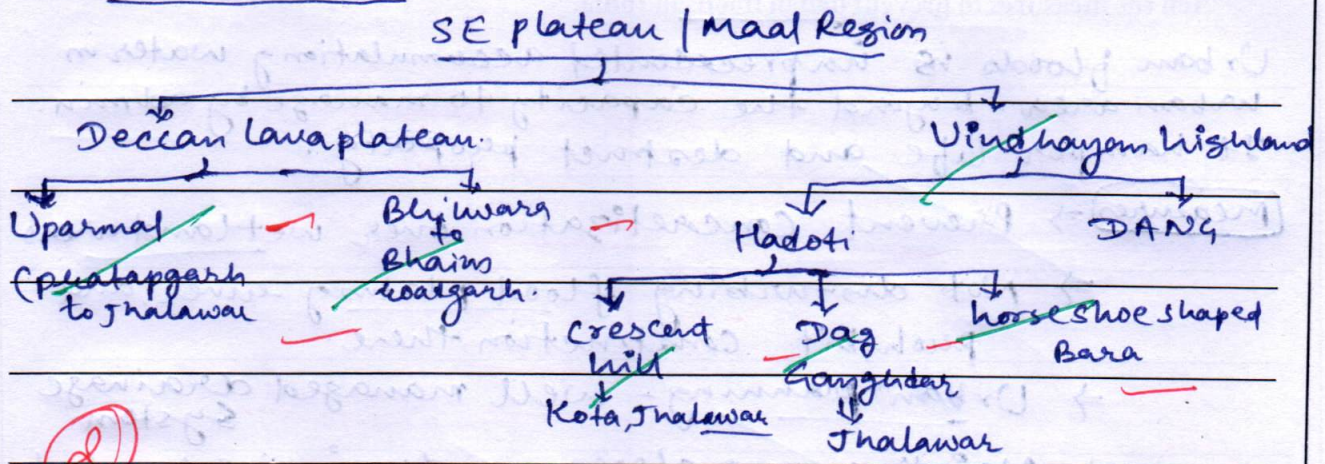 SE plateau | Maal Region
Deccan Lava plateau.
Vindhayan highland
Uparmal
(pratapgarh
to Jhalawar
Bhilwara
to
Bhains
roadgarh.
Hadoti
DANG
Crescent
hill
Kota, Jhalawar
Dag
Ganghdar
Jhalawar
horse shoe shaped
Bara